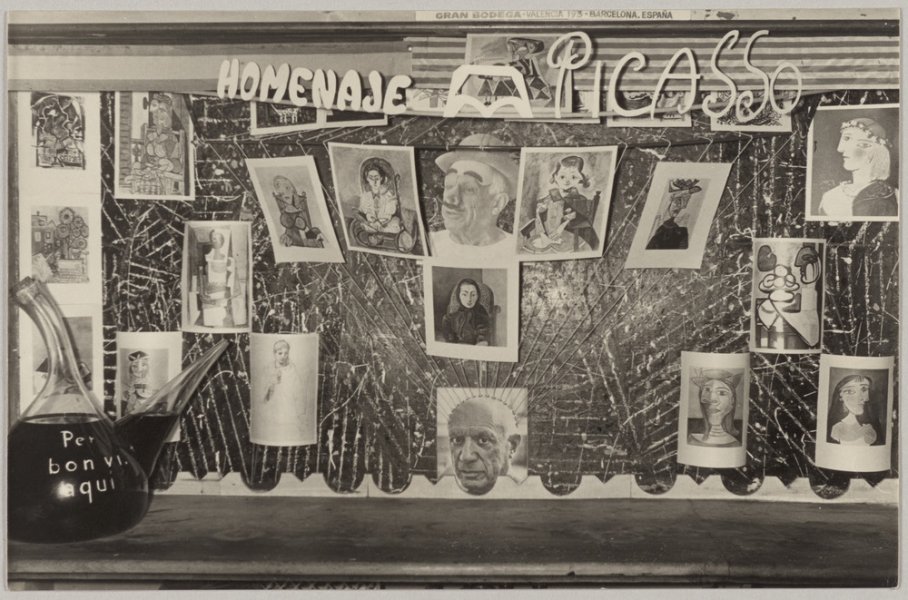 GRAN BODEGA - VALENCIA 193 - BARCELONA, ESPAÑA
HOMENAJE A PICASSO
Per
bon vi
aqui